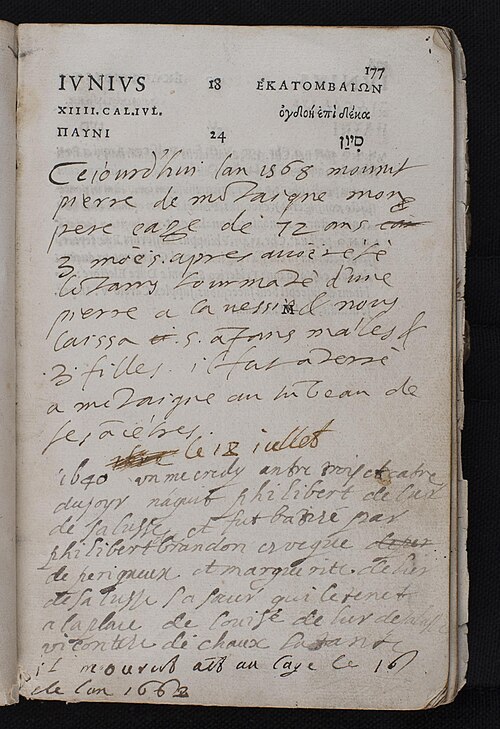 177
IVNIVS 18 ἙΚΑΤΟΜΒΑΙΩΝ
XIIII. CAL. IVL.
ΠΑΥΝΙ 24 סיון
Ceiourdhui lan 1568 mourut
pierre de mõtaigne mon
pere eage de 72 ans
3 mois apres avoir esté
lõtamps tourmãté d'une
pierre a la vessie & nous
laissa 5. afans males &
3 filles. il fut aterré
a mõtaigne au tũbeau de
ses ãcétres.
le 18 iullet
1640 un mecredy antre trois et catre
du jour naquit philibert de lur
de salusse et fut batisé par
philibert brandon evesque
de perigueux et marguerite de lur
de salusse sa seur qui le tenet
a la place de louise de lur de
vicontesse de chaux sa tante
il mourut au le 16
de lan 1662